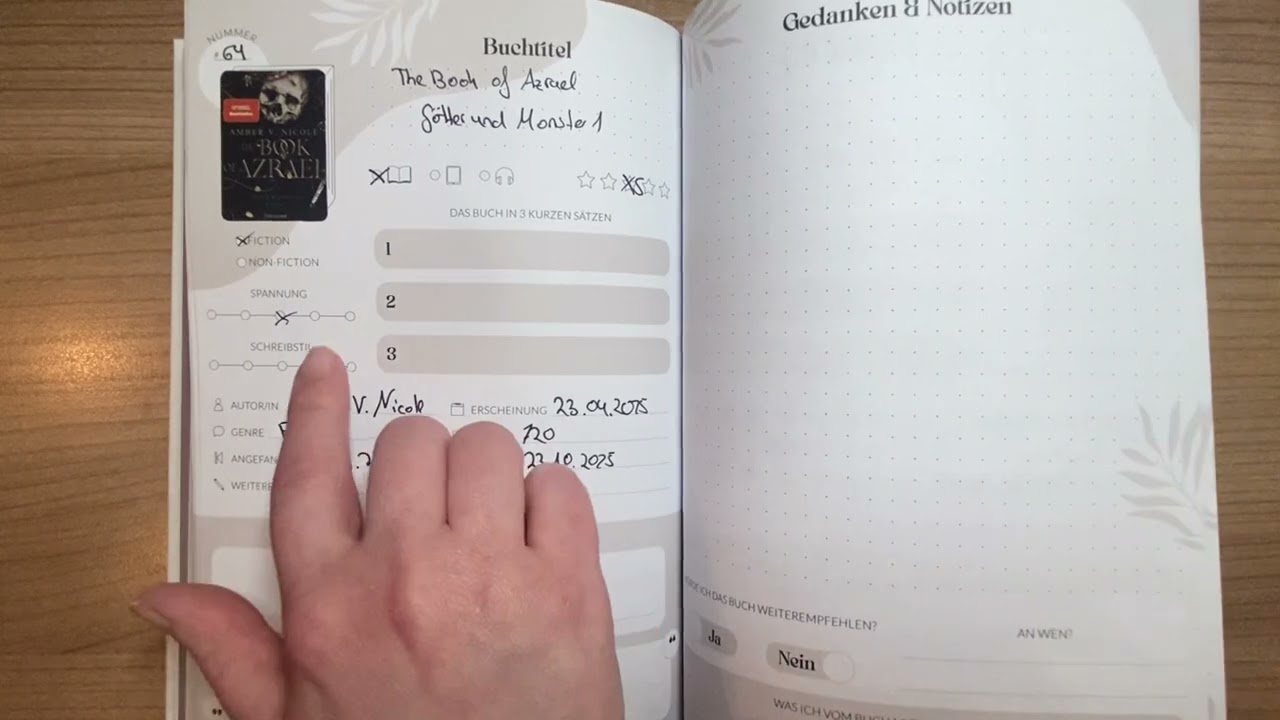 NUMMER
#64
Buchtitel
The Book of Azrael
Götter und Monster 1
SPIEGEL
Bestseller
AMBER V. NICOLE
BOOK
OF AZRAEL
DAS BUCH IN 3 KURZEN SÄTZEN
FICTION
NON-FICTION
1
SPANNUNG
2
SCHREIBSTIL
3
AUTOR/IN V. Nicole ERSCHEINUNG 23.04.2025
GENRE 720
ANGEFAN 23.10.2025
WEITERE
Gedanken & Notizen
ICH DAS BUCH WEITEREMPFEHLEN?
AN WEN?
Ja
Nein
WAS ICH VOM BUCH